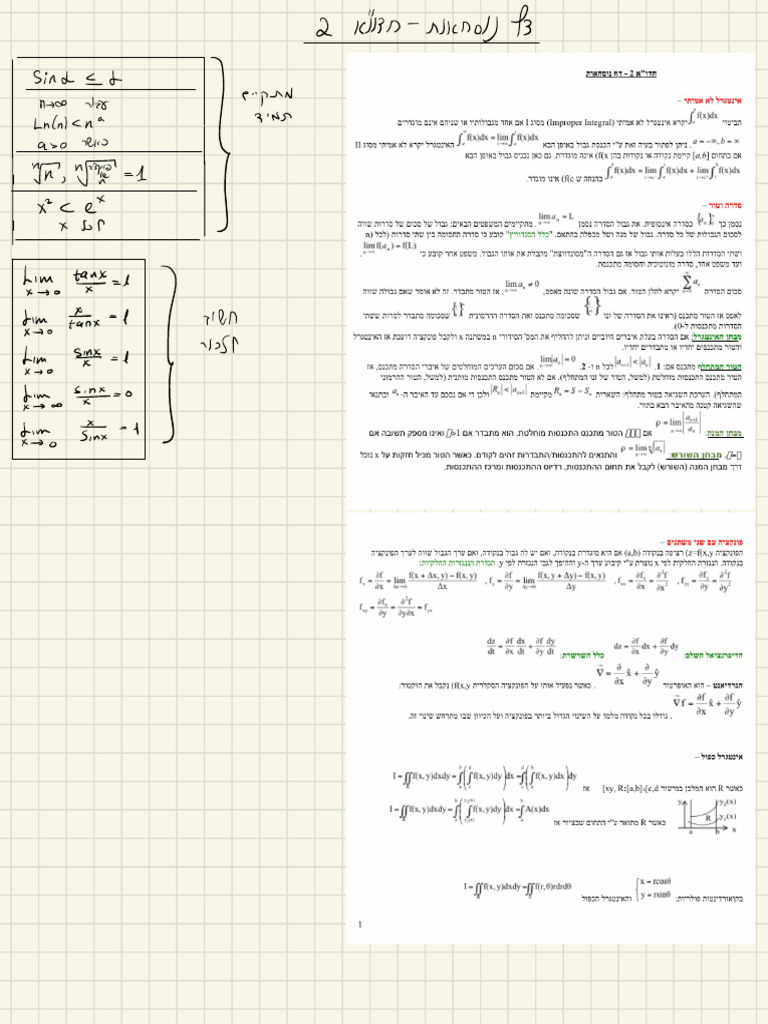 דף נוסחאות - חדו"א 2
Sinα ≤ α
n→∞ עבור
Ln(n) < n^a
a>0 כאשר
ⁿ√n, = 1
x² < e^x
x לכל
מתקיים
תמיד
Lim x→0 tanx/x = 1
Lim x→0 x/tanx = 1
Lim x→0 sinx/x = 1
Lim x→∞ sinx/x = 0
Lim x→0 x/sinx = 1
חשוב
לזכור
חדו"א 2 - דף נוסחאות
אינטגרל לא אמיתי –
הביטוי ∫_a^b f(x)dx יקרא אינטגרל לא אמיתי (Improper Integral) מסוג I אם אחד מגבולותיו או שניהם אינם מוגדרים
a = −∞, b = ∞ . ניתן לפתור בעיה זאת ע"י הכנסת גבול באופן הבא האינטגרל יקרא לא אמיתי מסוג II
אם בתחום [a,b] קיימת נקודה או נקודות בהן f(x) אינה מוגדרת. גם כאן נכניס גבול באופן הבא
בהנחה ש f(c) אינו מוגדר.
סדרה וטור –
נסמן כך {a_n} כסדרה אינסופית. את גבול הסדרה נסמן lim a_n = L n→∞ . מתקיימים המשפטים הבאים: גבול של סכום של סדרות שווה
לסכום הגבולות של כל סדרה. גבול של מנה ושל מכפלה בהתאם. "כלל הסנדוויץ" קובע כי סדרה החסומה בין שתי סדרות (לכל n)
ושתי הסדרות הללו בעלות אותו גבול אז גם הסדרה ה"מסונדוויצת" מקבלת את אותו הגבול. משפט אחר קובע כי lim f(a_n) = f(L) n→∞ .
ועד משפט אחד, סדרה מונוטונית וחסומה מתכנסת.
סכום הסדרה Σ a_n יקרא להלן הטור. אם גבול הסדרה שונה מאפס, lim a_n ≠ 0 n→∞ , אז הטור מתבדר. זה לא אומר שאם גבולה שווה
לאפס אז הטור מתכנס (ראינו את הסדרה של זנו { } שסכומה מתכנס ואת הסדרה ההרמונית { } שסכומה מתבדר למרות ששתי
הסדרות מתכנסות ל-0).
מבחן האינטגרל: אם הסדרה בעלת איברים חיוביים וניתן להחליף את המס' הסידורי n במשתנה x ולקבל פונקציה רועכת אז האינטגרל
והטור מתכנסים יחדיו או מתבדרים יחדיו.
הטור המתחלף מתכנס אם: 1. |a_{n+1}| < |a_n| לכל n ו- 2. lim|a_n| = 0 n→∞ . אם סכום הערכים המוחלטים של איברי הסדרה מתכנס, אז
הטור מתכנס התכנסות מוחלטת (למשל, הטור של זנו המתחלף). אם לא הטור מתכנס התכנסות מותנית (למשל, הטור ההרמוני
המתחלף). הערכת השגיאה בטור מתחלף: השארית R_n = S − S_n מקיימת |R_n| < |a_{n+1}| ולכן די אם נסכם עד האיבר ה- a_n ובתנאי
שהשגיאה קטנה מהאיבר הבא בתור.
מבחן המנה: ρ = lim n→∞ |a_{n+1}/a_n| אם הטור מתכנס התכנסות מוחלטת. הוא מתבדר אם 1< ואינו מספק תשובה אם
=. מבחן השורש: ρ = lim n→∞ ⁿ√|a_n| והתנאים להתכנסות/התבדרות זהים לקודם. כאשר הטור מכיל חזקות על x נוכל
דרך מבחן המנה (השורש) לקבל את תחום ההתכנסות, רדיוס ההתכנסות ומרכז ההתכנסות.
פונקציה עם שני משתנים –
הפונקציה z=f(x,y) רציפה בנקודה (a,b) אם היא מוגדרת בנקודה, ואם יש לה גבול בנקודה, ואם ערך הגבול שווה לערך הפונקציה
בנקודה. הנגזרת החלקית לפי x נוצרת ע"י קיבוע ערך ה-y וההיפך לגבי הנגזרת לפי y. הגדרת הנגזרות החלקיות:
f_x = ∂f/∂x = lim Δx→0 (f(x + Δx, y) − f(x, y))/Δx , f_y = ∂f/∂y = lim Δy→0 (f(x, y + Δy) − f(x, y))/Δy , f_xx = ∂f_x/∂x = ∂²f/∂x² , f_yy = ∂f_y/∂y = ∂²f/∂y²
f_xy = ∂f_x/∂y = ∂²f/∂y∂x = f_yx
הדיפרנציאל השלם: dz = ∂f/∂x dx + ∂f/∂y dy כלל השרשרת: dz/dt = ∂f/∂x dx/dt + ∂f/∂y dy/dt
הגרדיאנט – הוא האופרטור ∇ = ∂/∂x x̂ + ∂/∂y ŷ . כאשר נפעיל אותו על הפונקציה הסקלרית f(x,y) נקבל את הוקטור:
∇f = ∂f/∂x x̂ + ∂f/∂y ŷ . גודלו בכל נקודה מלמד על השינוי הגדול ביותר בפונקציה ועל הכיוון שבו מתרחש שינוי זה.
אינטגרל כפול –
כאשר R הוא המלבן במישור xy, R:[a,b],[c,d] אז I = ∬_R f(x, y)dxdy = ∫_a^b (∫_c^d f(x, y)dy) dx = ∫_c^d (∫_a^b f(x, y)dx) dy
כאשר R מתואר ע"י התחום שבציור אז I = ∬_R f(x, y)dxdy = ∫_a^b (∫_{y₁(x)}^{y₂(x)} f(x, y)dy) dx = ∫_a^b A(x)dx
y y₂(x) R y₁(x) a b x
בקואורדינטות פולריות: { x = rcosθ y = rsinθ והאינטגרל הכפול I = ∬_R f(x, y)dxdy = ∬_R f(r, θ)rdrdθ
1